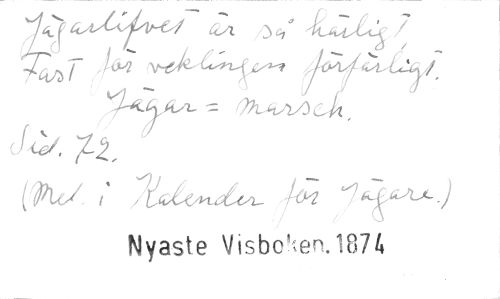 Jägarlifvet är så härligt,
Fast för veklingen förfärligt.
Jägar = marsch.
Sid. 72.
(Mel. i Kalender för Jägare.)
Nyaste Visboken. 1874